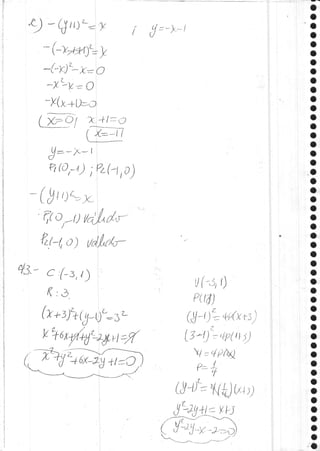 c) -(y+1)² = x ; y=-x-1
-(-x-1+1)² = x
-(-x)²-x=0
-x²-x=0
-x(x+1)=0
x=0 x+1=0
x=-1
y=-x-1
P₁(0,-1) ; P₂(-1,0)
-(y+1)²=x
P₁(0,-1) válido
P₂(-1,0) válido
C(-3,1)
R:3
(x+3)²+(y-1)²=3²
x²+6x+9+y²-2y+1=9
x²+y²+6x-2y+1=0
V(-3,1)
(y-1)²=4p(x+3)
(3-1)²=4p(1+3)
P=1/4
(y-1)²=4(1/4)(x+3)
y²-2y+1=x+3
y²-2y-x-2=0